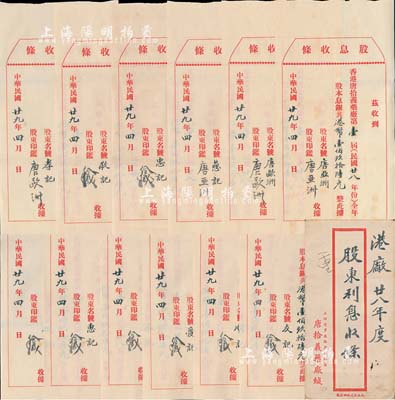 上海陽明拍賣
股息收條
茲收到
香港唐拾義藥廠第壹屆民國廿八年份全年
股本息銀共港幣壹佰玖拾陸元整此據
股東名號唐亞洲
股東印鑑唐亞洲
收據
中華民國廿九年四月 日
收條
股東名號唐歐洲
股東印鑑
收據
中華民國廿九年四月 日
收條
股東名號慈記
股東印鑑唐亞洲
收據
中華民國廿九年四月 日
收條
股東名號忠記
股東印鑑
收據
中華民國廿九年四月 日
收條
股東名號敬記
股東印鑑
收據
中華民國廿九年四月 日
收條
股東名號孝記
股東印鑑
收據
中華民國廿九年四月 日
港廠廿八年度
股東利息收條
唐拾義藥廠緘
股本息銀共港幣壹佰玖拾陸元
股東名號友記
股東印鑑
收據
中華民國廿九年四月 日
中華民國廿九年四月 日
股東名號
股東印鑑
收據
中華民國廿九年四月 日
股東名號惠記
股東印鑑
收據
中華民國廿九年四月 日
股東名號
股東印鑑
收據
中華民國廿九年四月 日